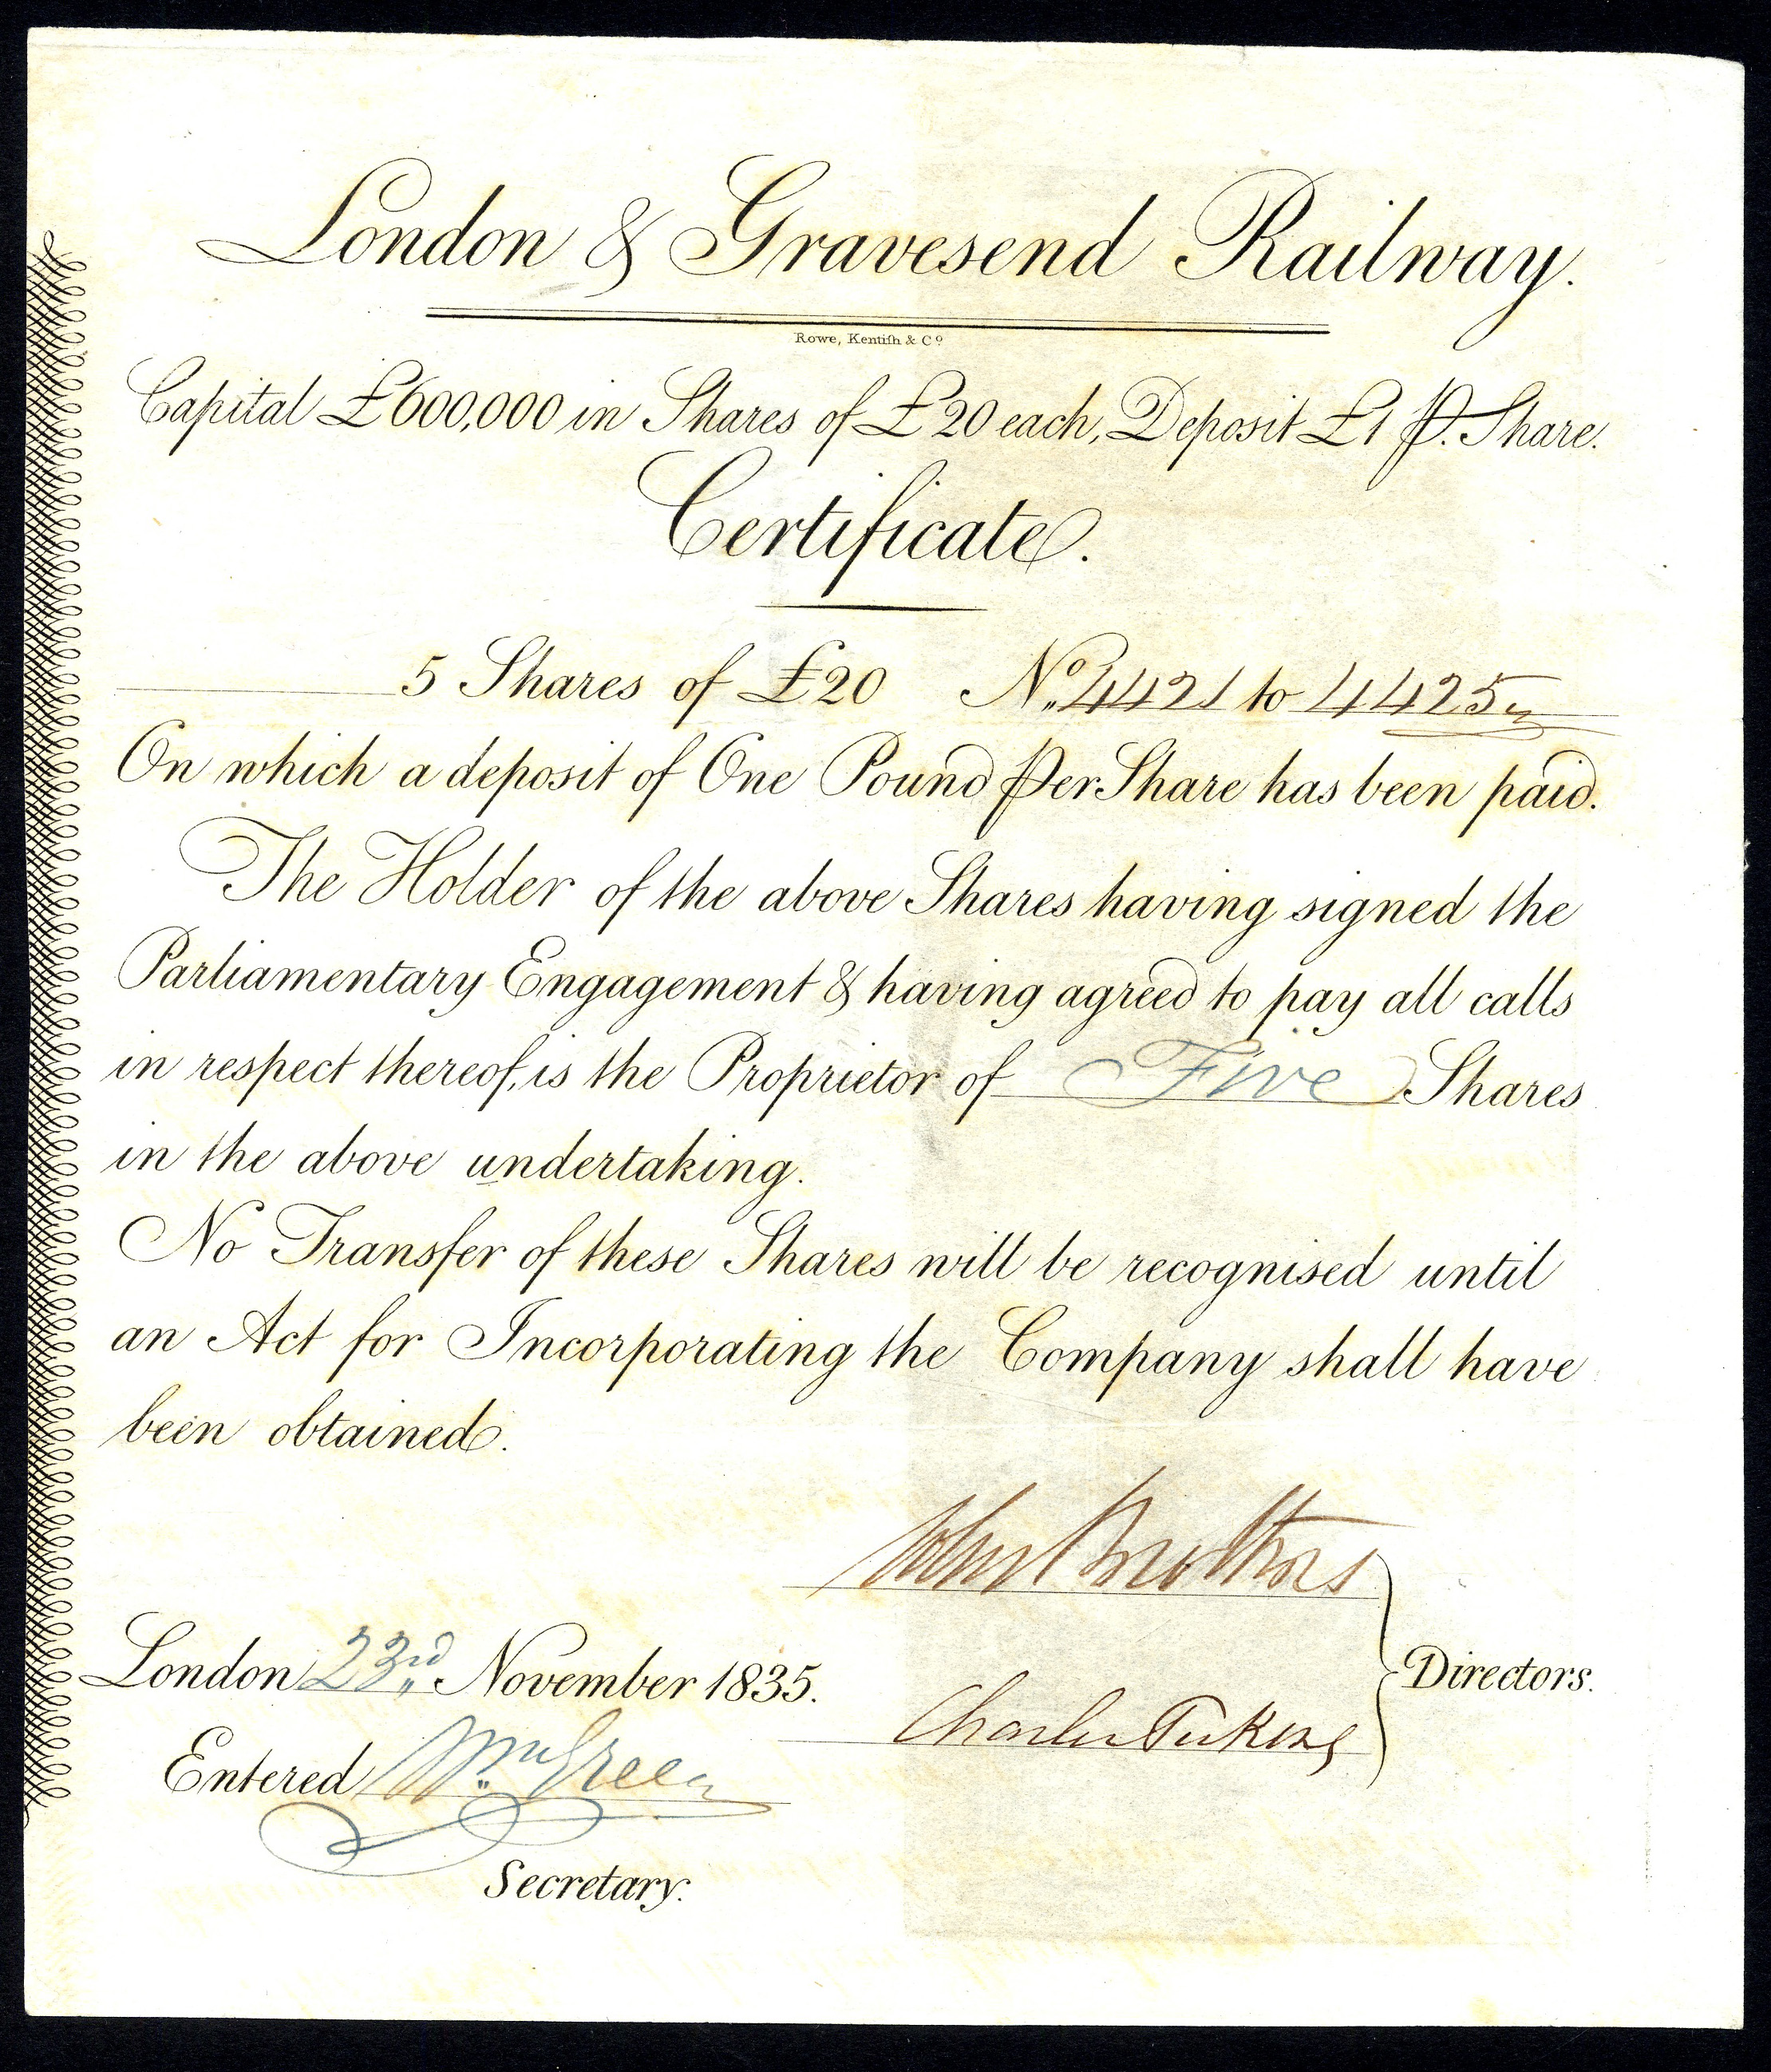 London & Gravesend Railway.
Rowe, Kentish & Co
Capital £600,000 in Shares of £20 each, Deposit £1 P. Share.
Certificate.
5 Shares of £20 No. 4421 to 4425
On which a deposit of One Pound Per Share has been paid.
The Holder of the above Shares having signed the
Parliamentary Engagement & having agreed to pay all calls
in respect thereof, is the Proprietor of Five Shares
in the above undertaking.
No Transfer of these Shares will be recognised until
an Act for Incorporating the Company shall have
been obtained.
John
London 23rd November 1835.
Directors.
Charles
Entered Wm Green
Secretary.